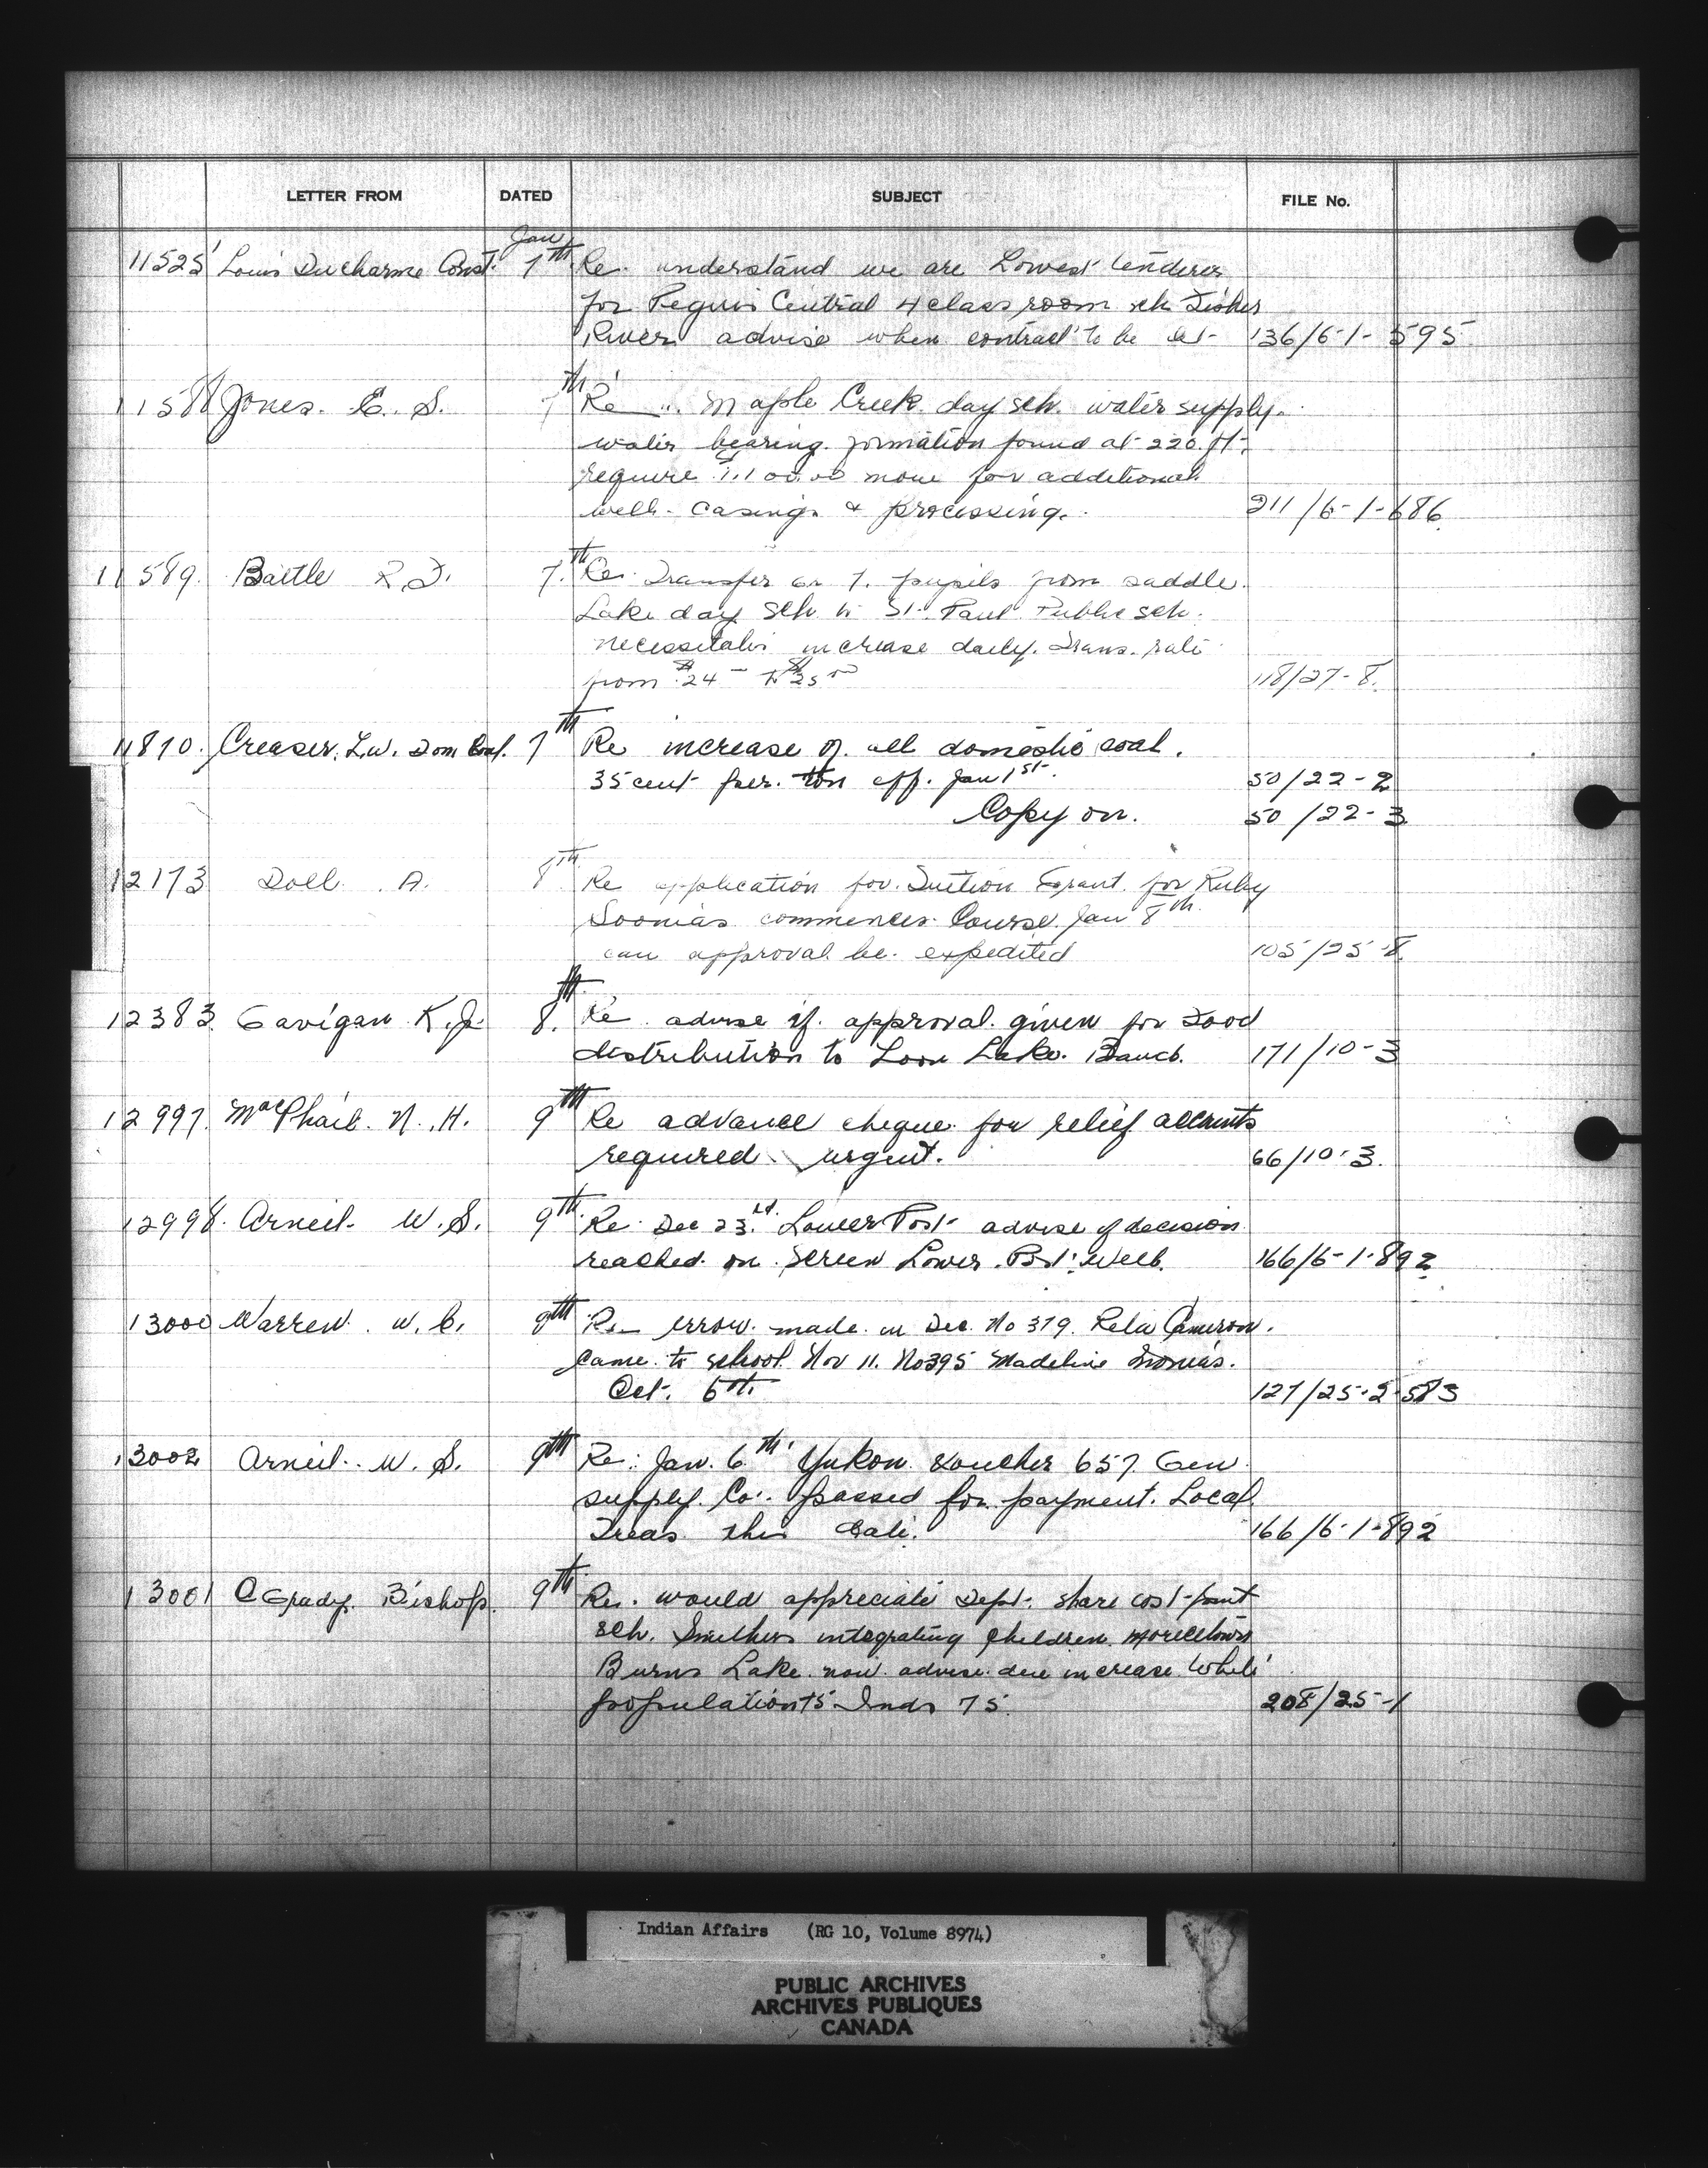 LETTER FROM DATED SUBJECT FILE No.
Jan
11525 Louis Ducharme Const. 7th Re. understand we are Lowest tenderer
for Peguis Central 4 class room sch Fisher
River advise when contract to be let 136/6-1-595
11588 Jones. E. S. 7th Re Maple Creek day sch. water supply.
water bearing formation found at 220 ft.
require more for additional
well-casing & processing. 211/6-1-686
11589. Battle R. F. 7.th Re. Transfer 7. pupils from saddle
Lake day Sch. to St. Paul Public sch.
necessitates increase daily. Trans. rate
from $24 to $25 118/27-8.
11870. Creaser. L.W. Dom Coal. 7th Re increase of all domestic coal.
35 cent per. ton eff. Jan 1st. 50/22-2
Copy on. 50/22-3
12173 Doll A. 8th Re application for Tuition Grant for Ruby
Soonias commences Course Jan 8th.
can approval be expedited 105/25-8
12383. Gavigan K. J. 8.th Re advise if approval given for Food
distribution to Loon Lake Band. 171/10-3
12997. MacPhail N. H. 9th Re advance cheque for relief accounts
required urgent. 66/10-3.
12998. Arneil W. S. 9th Re Dec 23rd. Lower Post advise of decision
reached on Screen Lower Post Well. 166/6-1-892
13000 Warren W. C. 9th Re error made in Dec. No 379. Rela Cameron.
came to school Nov 11. No 395 Madeline
Oct. 6th. 127/25-2-583
13002 Arneil W. S. 9th Re: Jan. 6th Yukon voucher 657 Gen
supply Co. passed for payment. Local
Treas this date. 166/6-1-892
13001 O Grady Bishop. 9th Re. would appreciate Dept. share cost joint
sch. Smithers integrating children moricetown
Burns Lake now advise due increase White
population 75 Inds 75 208/25-1
Indian Affairs (RG 10, Volume 8974)
PUBLIC ARCHIVES
ARCHIVES PUBLIQUES
CANADA